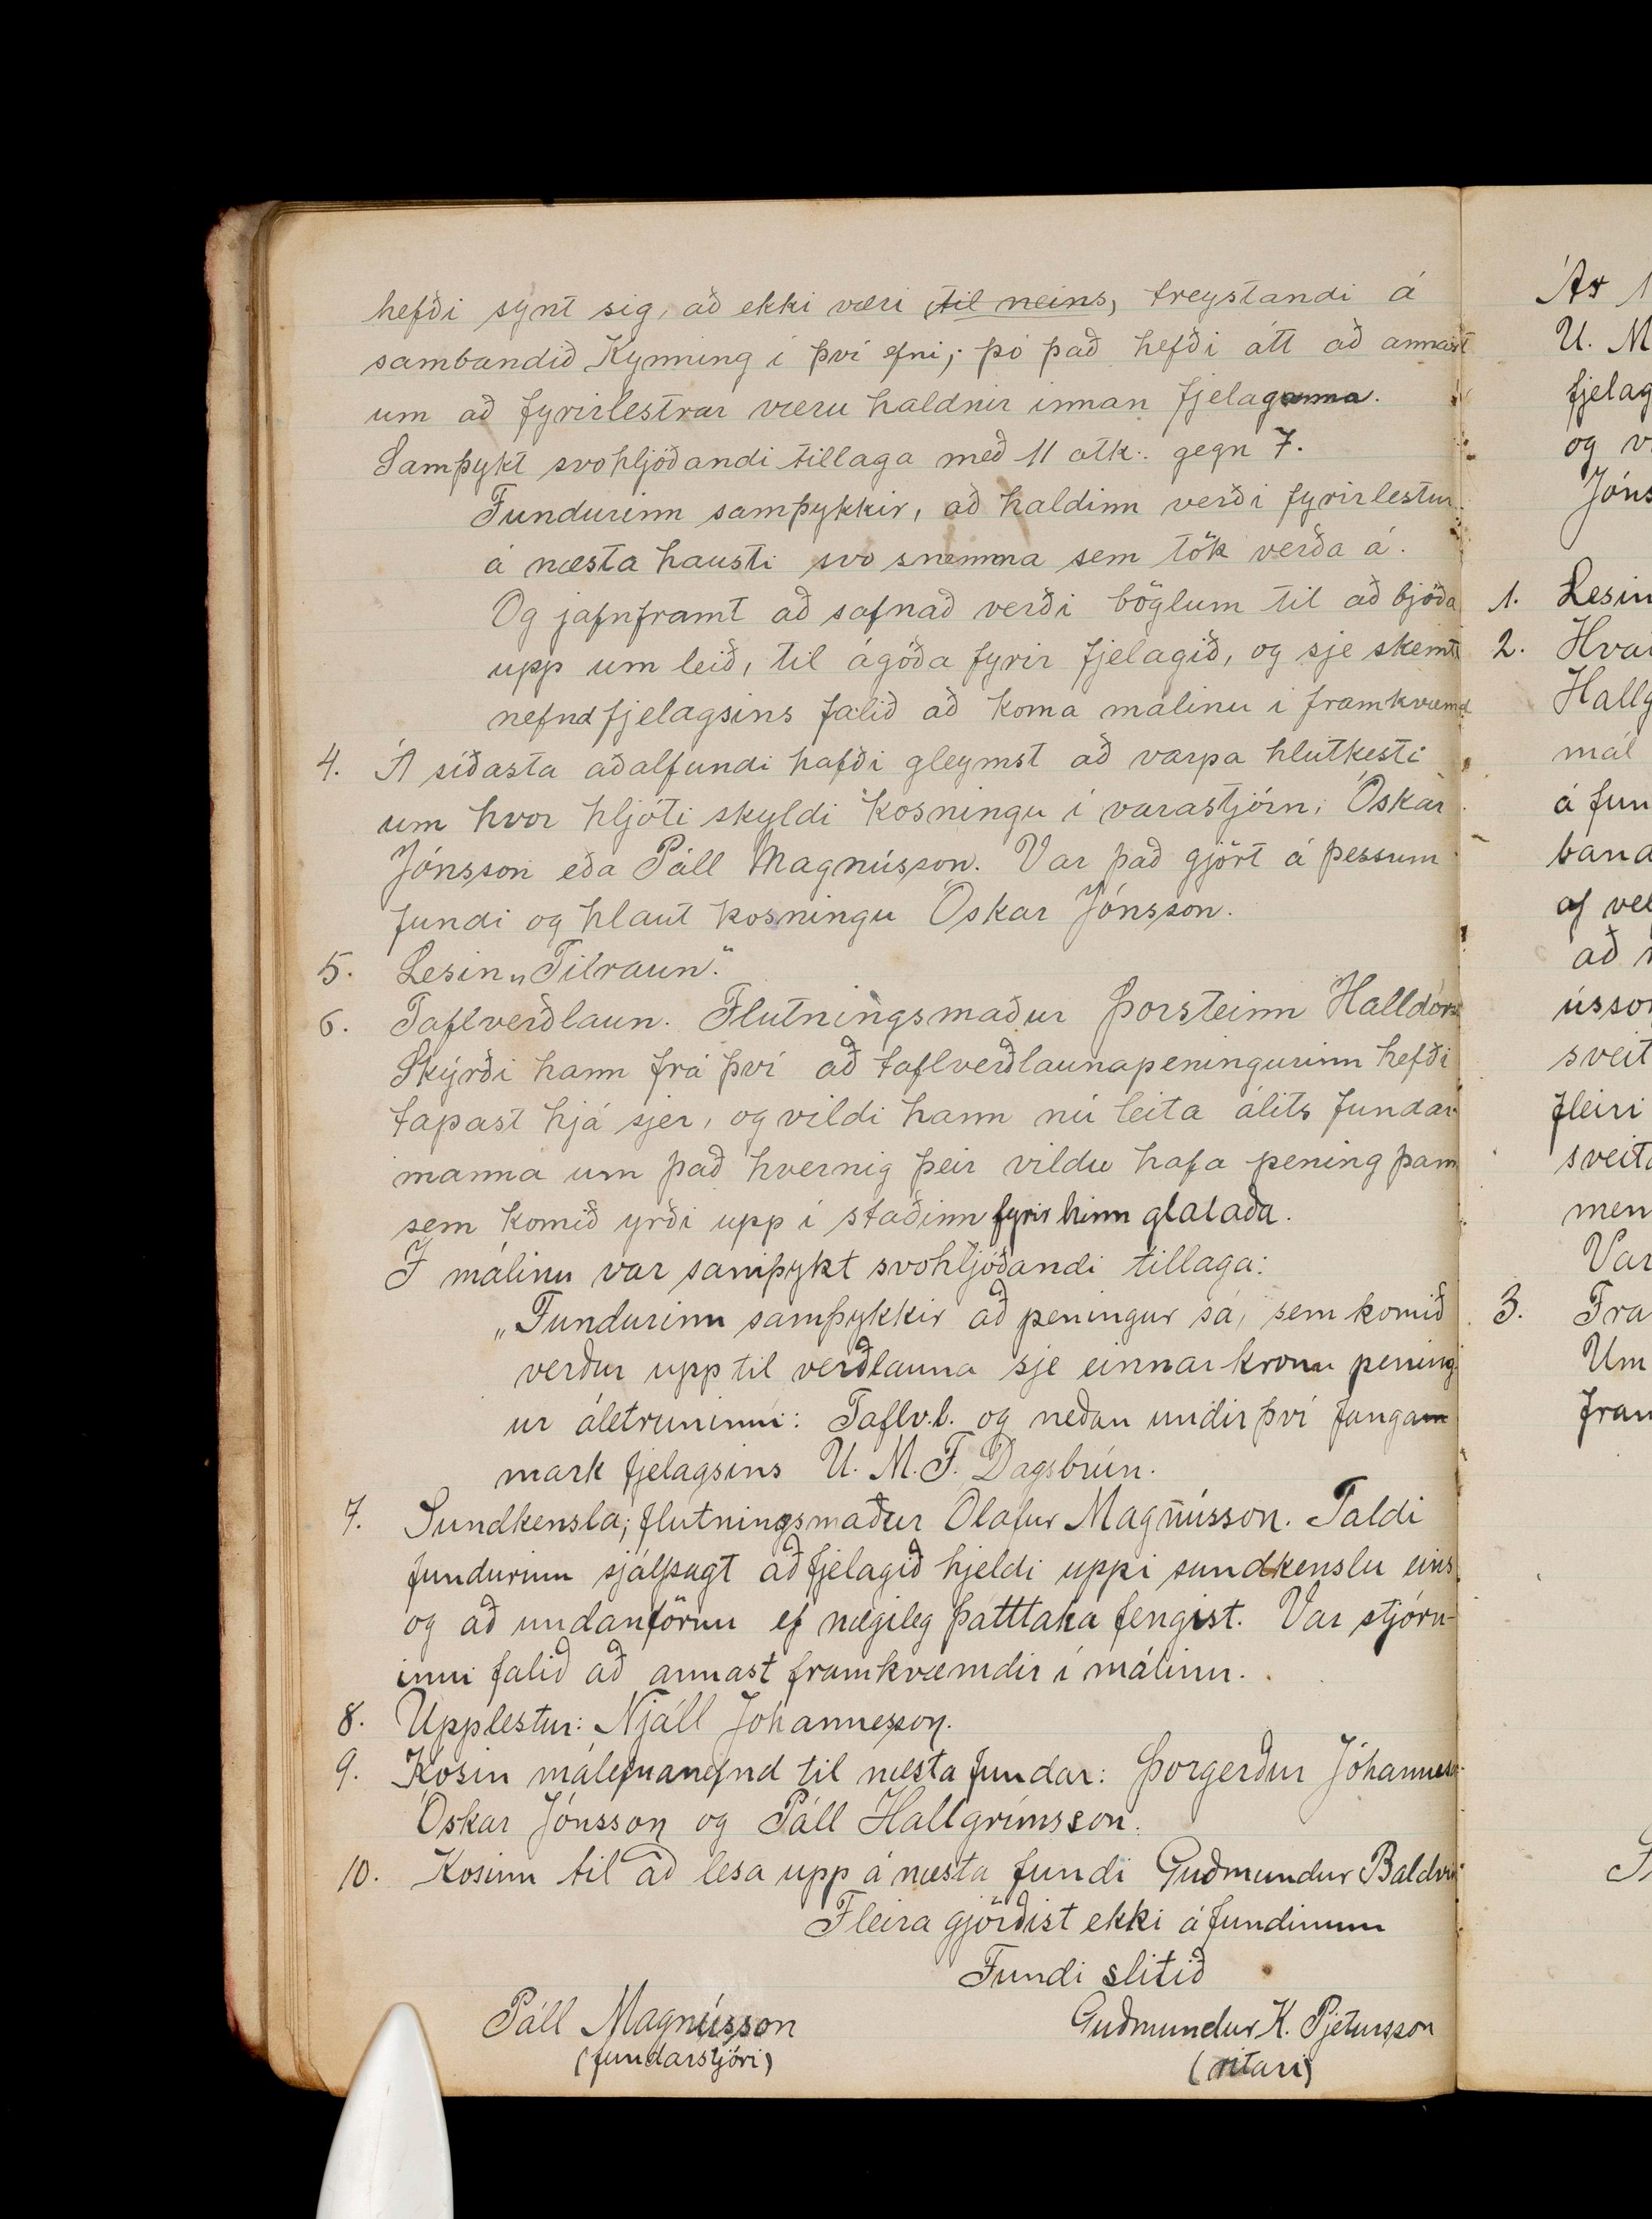 hefði sýnt sig, að ekki væri til neins, treystandi á
sambandið Kynning í því efni; þó það hefði átt að annast
um að fyrirlestrar væru haldnir innan fjelaganna.
Samþykt svohljóðandi tillaga með 11 atk. gegn 7.
Fundurinn samþykkir, að haldinn verði fyrirlestur
á næsta hausti svo snemma sem tök verða á.
Og jafnframt að safnað verði böglum til að bjóða
upp um leið, til ágóða fyrir fjelagið, og sje skemti
nefnd fjelagsins falið að koma málinu í framkvæmd
4. Á síðasta aðalfundi hafði gleymst að varpa hlutkesti
um hvor hljóti skyldi kosningu í varastjórn, Óskar
Jónsson eða Páll Magnússon. Var það gjört á þessum
fundi og hlaut kosningu Óskar Jónsson.
5. Lesin „Tilraun“.
6. Taflverðlaun. Flutningsmaður Þorsteinn Halldórs
Skýrði hann frá því að taflverðlaunapeningurinn hefði
tapast hjá sjer, og vildi hann nú leita álits fundar
manna um það hvernig þeir vildu hafa pening þann
sem komið yrði upp í staðinn fyrir hinn glataða.
Í málinu var samþykt svohljóðandi tillaga:
„Fundurinn samþykkir að peningur sá, sem komið
verður upp til verðlauna sje einnar krónu pening
ur áletruninni: Taflv.l. og neðan undir því fanga
mark fjelagsins U. M. F. Dagsbrún.
7. Sundkensla; flutningsmaður Ólafur Magnússon. Taldi
fundurinn sjálfsagt að fjelagið hjeldi uppi sundkenslu eins
og að undanförnu ef nægileg þátttaka fengist. Var stjórn-
inni falið að annast framkvæmdir í málinu.
8. Upplestur: Njáll Jóhannesson.
9. Kosin málefnanefnd til næsta fundar: Þorgerður Jóhannesd.
Óskar Jónsson og Páll Hallgrímsson.
10. Kosinn til að lesa upp á næsta fundi Guðmundur Baldvi
Fleira gjörðist ekki á fundinum
Fundi slitið
Páll Magnússon
(fundarstjóri)
Guðmundur K. Pjetursson
(ritari)
Ár 1
U. M
fjelag
og v
Jóns
1. Lesin
2. Hvar
Hallg
mál
á fun
band
af vel
að
ússon
sveit
fleiri
sveita
men
Var
3. Fra
Um
fram